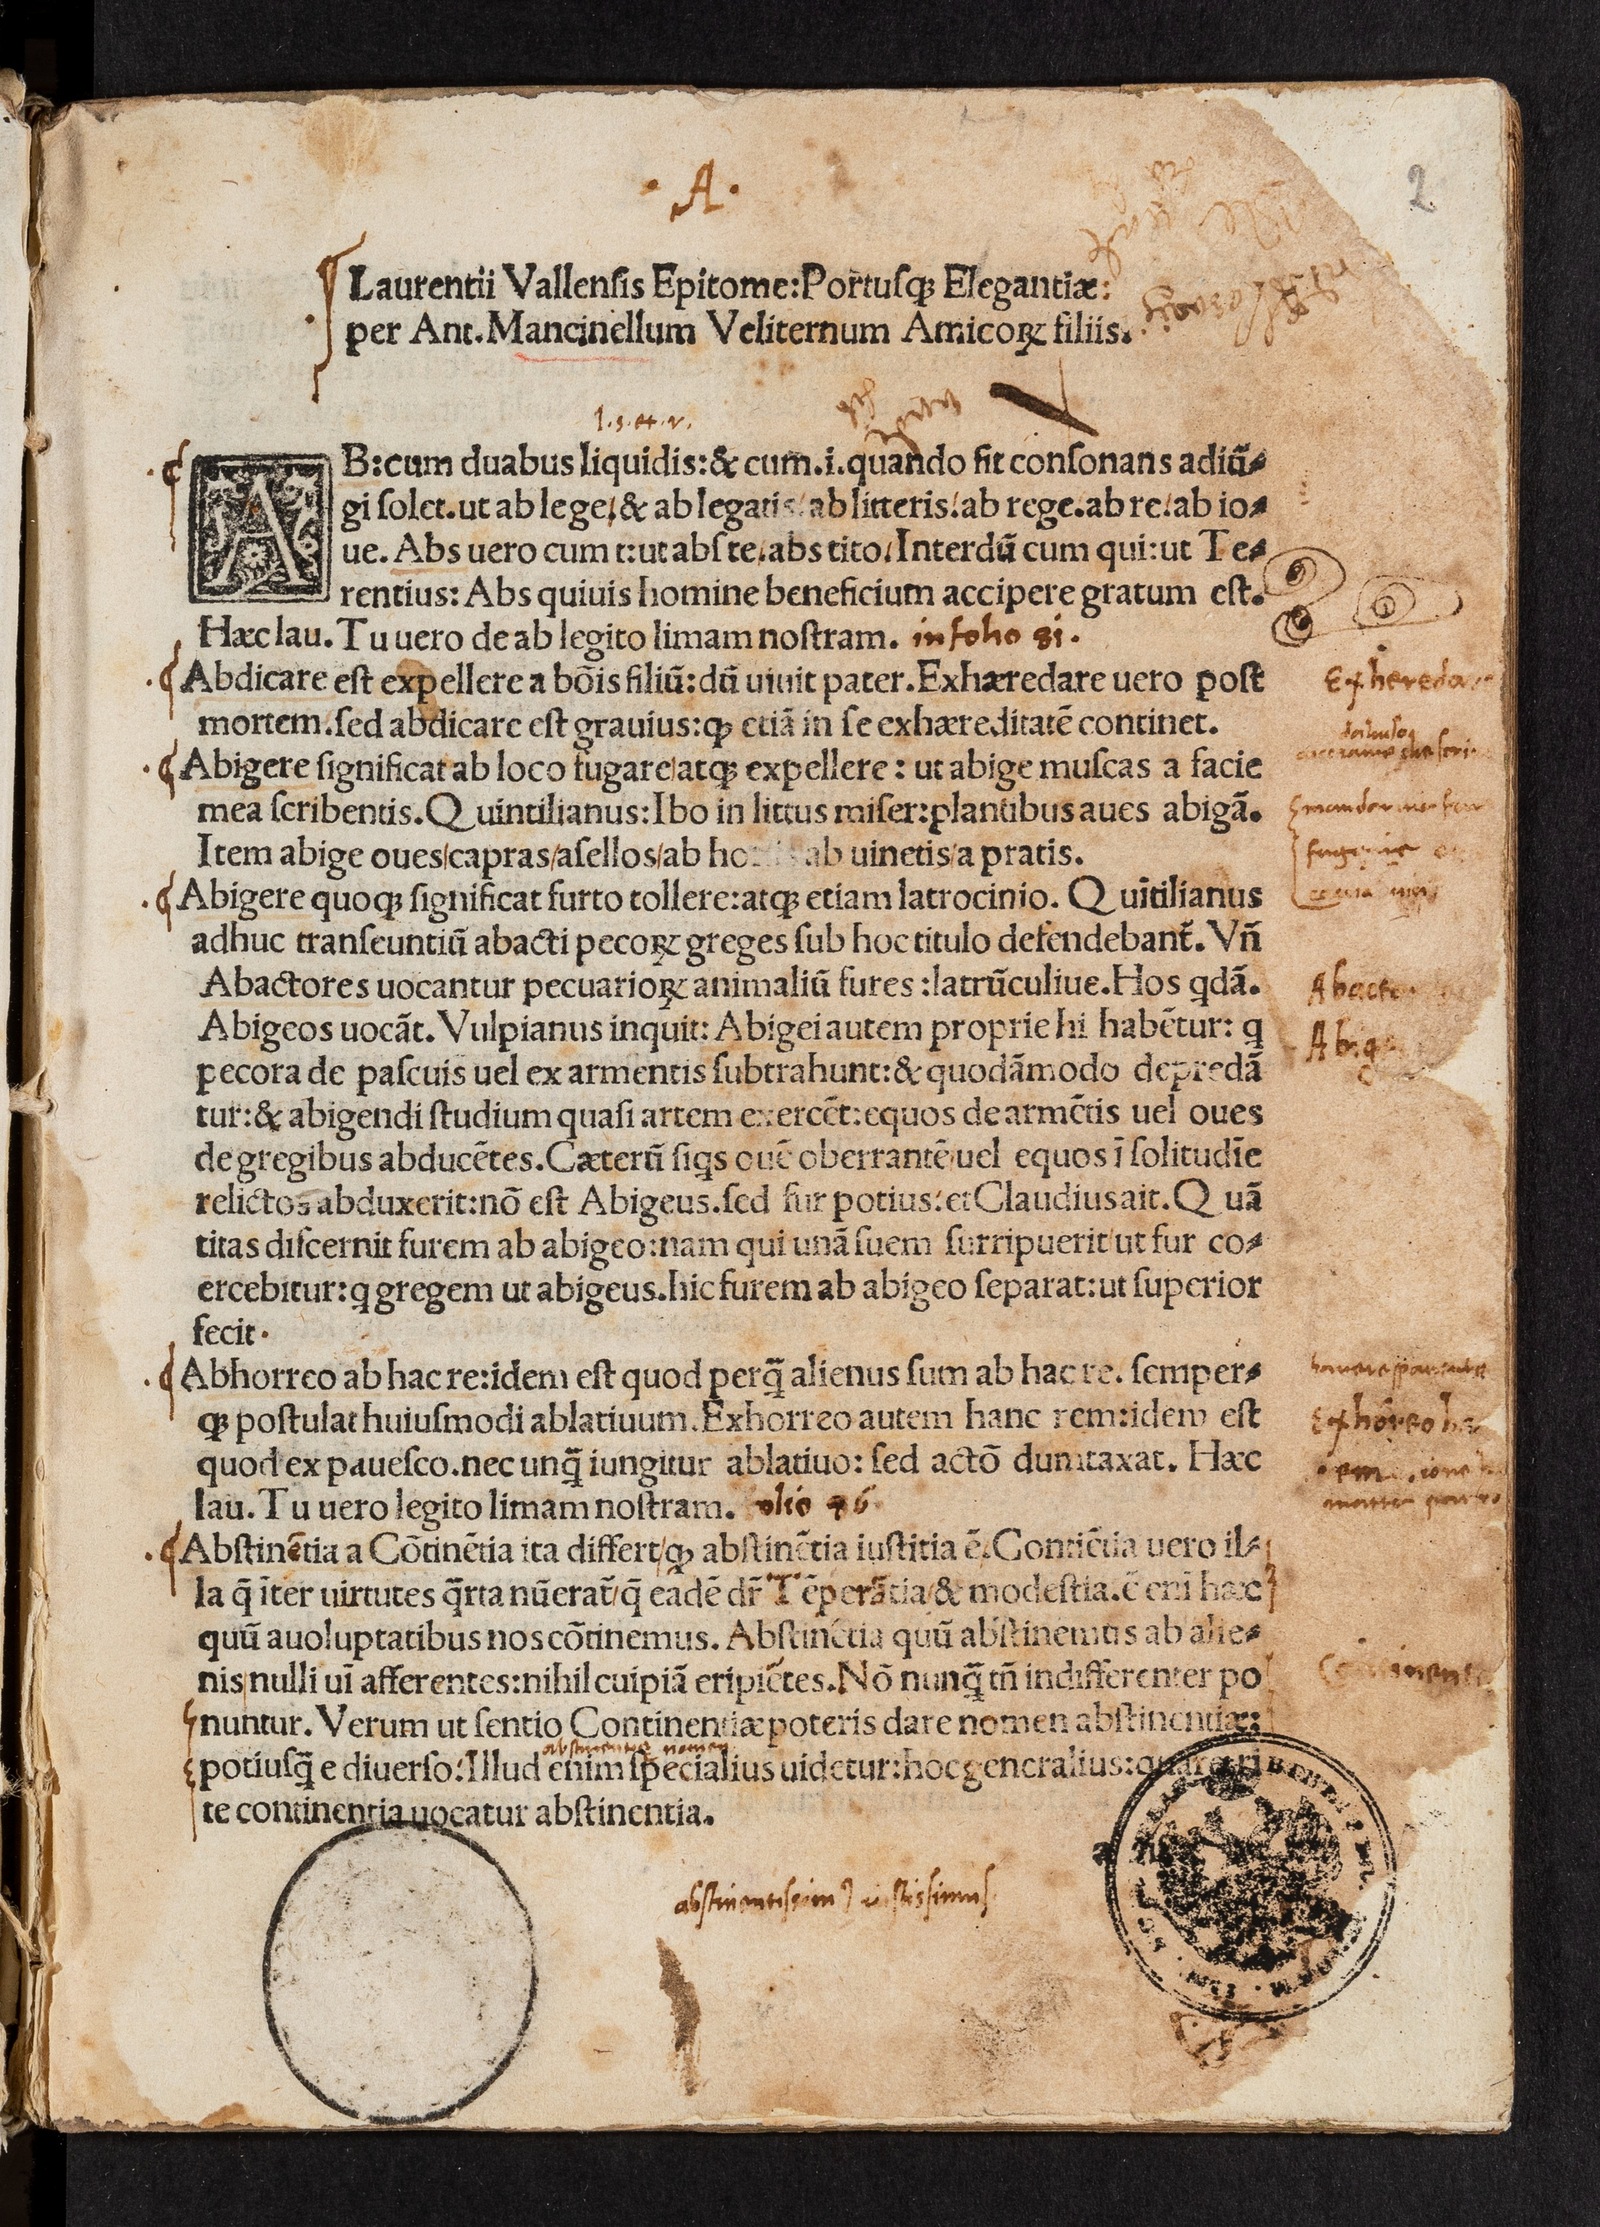 2
· A ·
Laurentii Vallenſis Epitome:Portuſqꝫ Elegantiæ:
per Ant.Mancinellum Veliternum Amicoꝝ filiis.
AB:cum duabus liquidis:& cum.i.quando fit conſonans adiũ⸗
gi ſolet.ut ab lege/& ab legatis/ab litteris/ab rege.ab re/ab io⸗
ue. Abs uero cum t:ut abſ te/abs tito/Interdũ cum qui:ut Te⸗
rentius: Abs quiuis homine beneficium accipere gratum eſt.
Hæc lau. Tu uero de ab legito limam noſtram. in folio 81.
Abdicare eſt expellere a bõis filiũ:dũ uiuit pater.Exhæredare uero poſt
mortem.ſed abdicare eſt grauius:qꝫ etiã in ſe exhæreditatẽ continet.
Abigere ſignificat ab loco fugare/atqꝫ expellere: ut abige muſcas a facie
mea ſcribentis.Quintilianus:Ibo in littus miſer:plantibus aues abigã.
Item abige oues/capras/aſellos/ab ab uinetis/a pratis.
Abigere quoqꝫ ſignificat furto tollere:atqꝫ etiam latrocinio. Quĩtilianus
adhuc tranſeuntiũ abacti pecoꝝ greges ſub hoc titulo defendebant̃. Vñ
Abactores uocantur pecuarioꝝ animaliũ fures:latrũculiue.Hos qdã.
Abigeos uocãt. Vulpianus inquit: Abigei autem proprie hi habẽtur: q
pecora de paſcuis uel ex armentis ſubtrahunt:& quodãmodo depredã
tur:& abigendi ſtudium quaſi artem exercẽt:equos de armẽtis uel oues
de gregibus abducẽtes.Cæterũ ſiqs ouẽ oberrantẽ/uel equos ĩ ſolitudĩe
relictos abduxerit:nõ eſt Abigeus.ſed fur potius:et Claudius ait.Quã
titas diſcernit furem ab abigeo:nam qui unã ſuem ſurripuerit/ut fur co⸗
ercebitur:q gregem ut abigeus.hic furem ab abigeo ſeparat:ut ſuperior
fecit.
Abhorreo ab hac re:idem eſt quod perq̃ alienus ſum ab hac re. ſemper⸗
qꝫ poſtulat huiuſmodi ablatiuum.Exhorreo autem hanc rem:idem eſt
quod expaueſco.nec unq̃ iungitur ablatiuo: ſed actõ dumtaxat. Hæc
lau. Tu uero legito limam noſtram.
Abſtinẽtia a Cõtinẽtia ita differt/qꝫ abſtinẽtia iuſtitia ẽ.Contiẽtia uero il⸗
la q̃ ĩter uirtutes q̃rta nũerat̃/q̃ eadẽ dr̃ Tẽperãtia/& modeſtia.ẽ enĩ hæc
quũ a uoluptatibus nos cõtinemus. Abſtinẽtia quũ abſtinemus ab alie⸗
nis/nulli uĩ afferentes:nihil cuipiã eripiẽtes.Nõ nunq̃ tñ indifferenter po
nuntur. Verum ut ſentio Continentiæ poteris dare nomen abſtinentiæ:
abstinentiæ nomen
potiuſq̃ e diuerſo:Illud enim ſpecialius uidetur:hoc generalius:quare ri
te continentia uocatur abſtinentia.